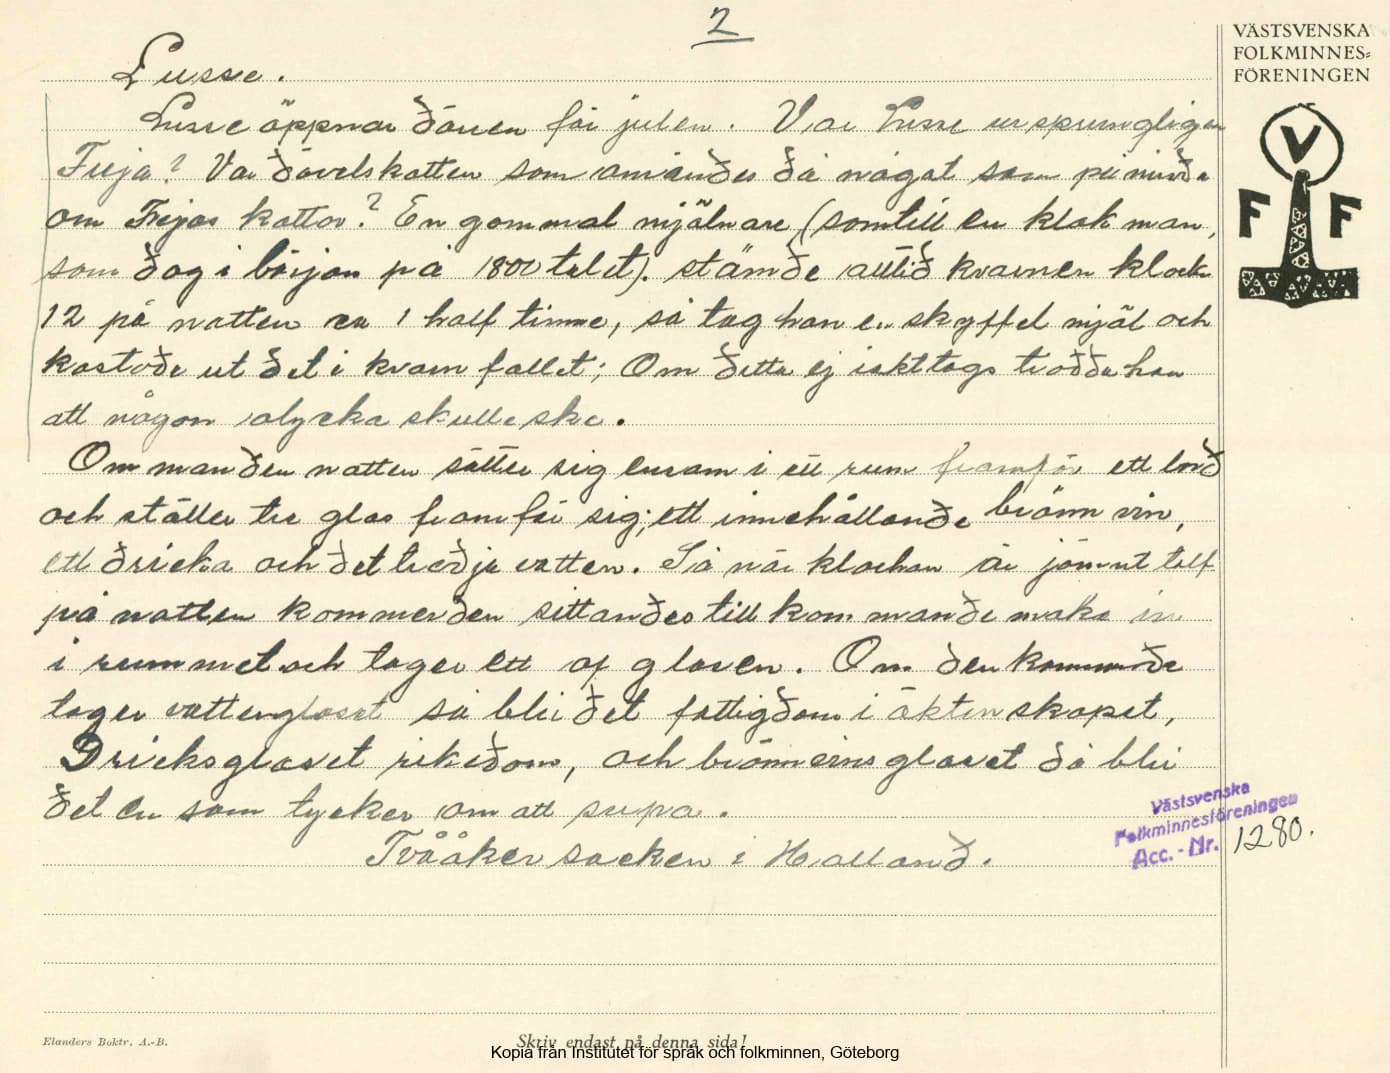 2
VÄSTSVENSKA
FOLKMINNES-
FÖRENINGEN
V
F F
Lusse.
Lusse öppnar dörren för julen. Var Lusse ursprungligen
Freja? Var dövelskatten som användes då något som påminde
om Frejas kattor? En gammal mjölnare (som till en klok man,
som dog i början på 1800 talet). stämde alltid kvarnen klock
12 på natten en 1 half timme, så tog han en skyffel mjöl och
kastode ut det i kvarn fallet; Om detta ej iakttogs trodde han
att någon olycka skulle ske.
Om man den natten sätter sig ensam i ett rum framför ett bord
och ställer tre glas framför sig; ett innehållande brännvin,
ett dricka och det tredje vatten. Så när klockan är jämnt tolf
på natten kommer den sittandes tillkommande make in
i rummet och tager ett af glasen. Om den kommande
tager vattenglaset så blir det fattigdom i äktenskapet,
Dricksglaset rikedom, och brännvinsglaset då blir
det en som tycker om att supa.
Tvååker socken i Halland.
Västsvenska
Folkminnesföreningen
Acc. - Nr. 1280.
Elanders Boktr. A.-B.
Skriv endast på denna sida!
Kopia från Institutet för språk och folkminnen, Göteborg